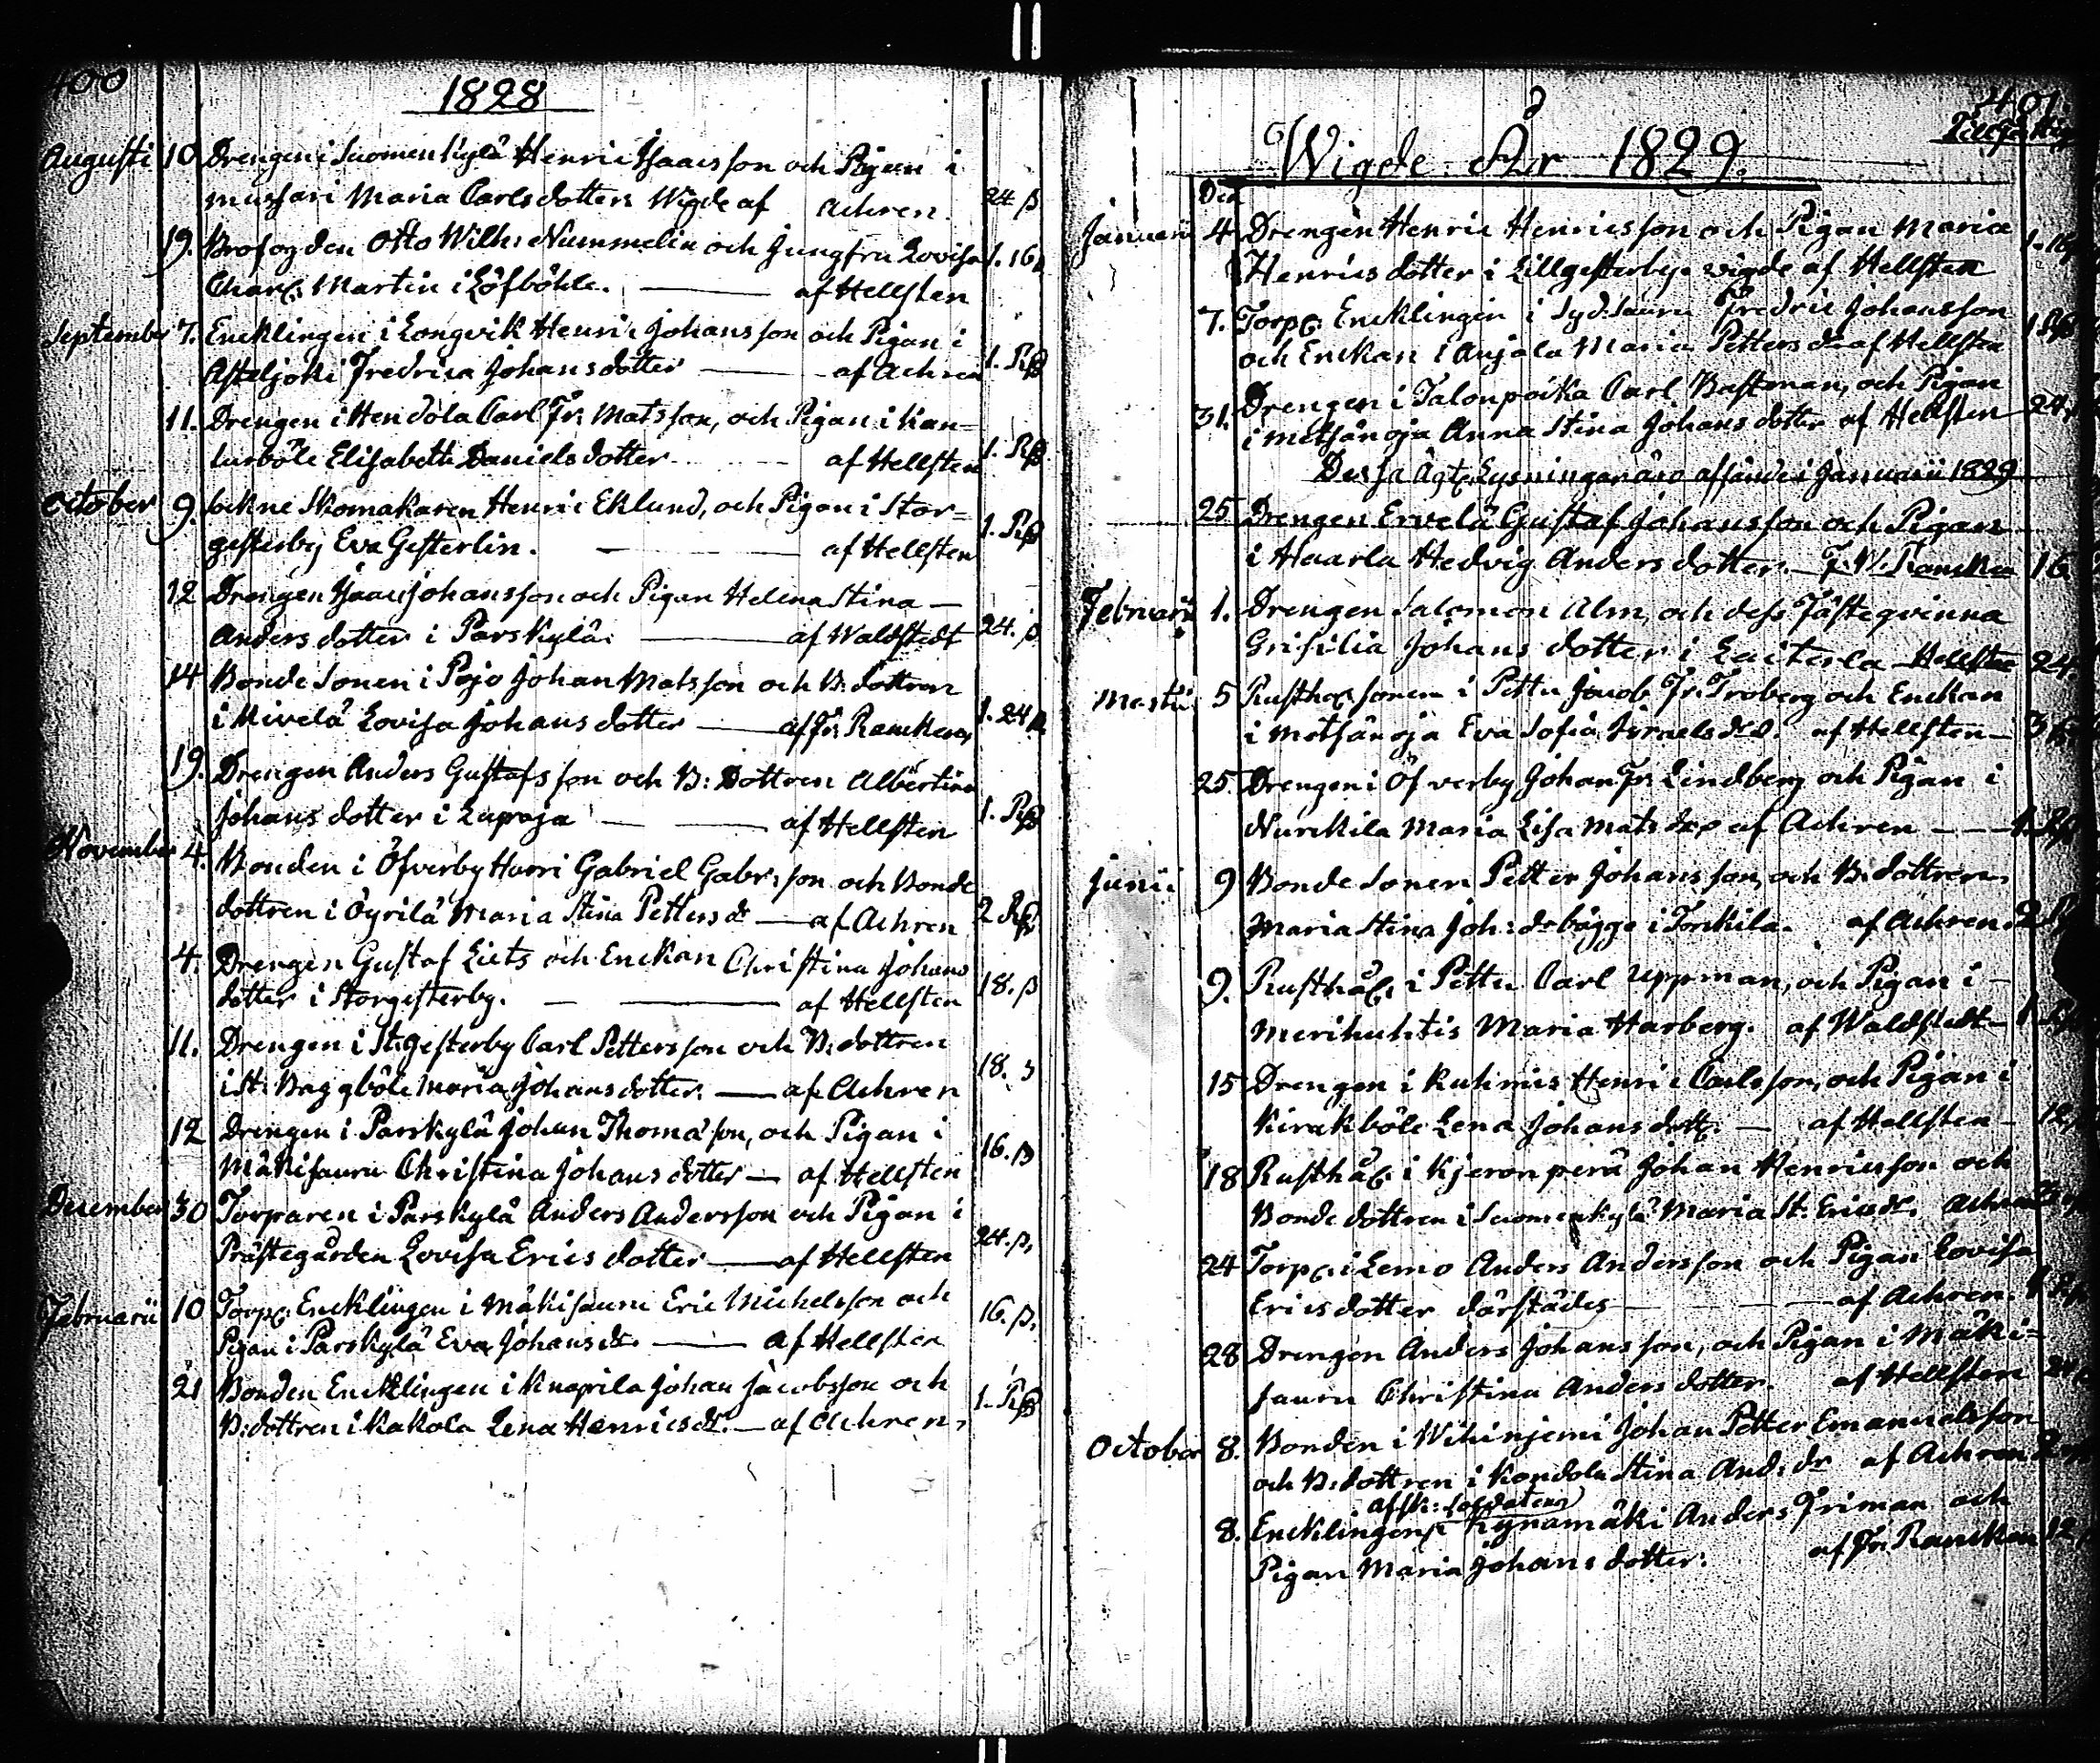 400
1828
Augusti 10. Drengen i Suomenkylä Henric Isaacsson och Pigan i
mussari Maria Carlsdotter. Wigde af Achren. 24 β
19. Brofogden Otto Wilh: Nummelin och Jungfru Lovisa
Charl. Martin i Löfböhle. af Hellsten 1. 16
September 7. Encklingen i Longvik Henric Johansson och Pigan i
Asteljoki Fredrica Johansdotter af Achren 1. Rβ
11. Drengen i Hendola Carl Fr: Matsson, och Pigan i Kan=
turböle Elisabeth Danielsdotter af Hellsten 1. Rβ
October 9. Sockne Skomakaren Henric Eklund, och Pigan i Stor=
gesterby Eva Gesterlin. af Hellsten 1. Rβ
12 Drengen Isaac Johansson och Pigan Helena Stina
Andersdotter i Parskylä. af Waldstedt 24. β
14 Bonde Sonen i Pojo Johan Matsson och B: dottren
i Mivelä Lovisa Johansdotter af Fr: Rancken 1. 24
19. Drengen Anders Gustafsson och B: Dottren Albertina
Johansdotter i Lupaja af Hellsten 1. Rβ
November 4. Bonden i Öfverby Harri Gabriel Gabr:son och Bonde
dottren i Öyrilä Maria Stina Petters dr af Achren 2 Rβ
4. Drengen Gustaf Liets och Enckan Christina Johans
dotter i Storgesterby. af Hellsten 18. β
11. Drengen i St:gesterby Carl Pettersson och B: dottren
i St: Baggböle Maria Johansdotter. af Achren 18.
12 Drengen i Parskylä Johan Thomasson, och Pigan i
Mäkisauru Christina Johansdotter af Hellsten 16. β
December 30 Torparen i Parskylä Anders Andersson och Pigan i
Prästegården Lovisa Ericsdotter af Hellsten 24. β.
Februarii 10 Torp. Encklingen i Mäkisauru Eric Michelsson och
Pigan i Parskylä Eva Johans dr. af Hellsten 16. β.
21 Bonden Encklingen i Knaprila Johan Jacobsson och
B: dottren i Kakola Lena Henrics dr. af Achren. 1. Rβ
401.
Wigde År 1829.
Den
Januarii 4. Drengen Henric Henricsson och Pigan Maria
Henricsdotter i Lillgesterby. wigde af Hellsten 1. 16
7. Torp. Encklingen i Syd.Sauru Fredric Johansson
och Enckan i Anjala Maria Petters dr af Hellsten 1 Rβ
31. Drengen i Talonpoika Carl Bastman, och Pigan
i Metsänoja Anna Stina Johansdotter af Hellsten 24.
Dessa Ägt. Lysningar äro afsände i Januarii 1829
25 Drengen Ervelä Gustaf Johansson och Pigan
i Haarla Hedvig Andersdotter. F: W: Rancken 16
Februarii 1. Drengen Salomon Alm, och dess Fästeqvinna
Grisilia Johansdotter i Laiterla Hellsten 24.
Martii 5 Rusth. sonen i Pettu Jacob Fr: Froberg och Enckan
i Metsänoja Eva Sofia Israels dr. af Hellsten 3
25. Drengen i Öfverby Johan Fr: Lindberg och Pigan i
Nurckila Maria Lisa Mats dr af Achren 1. Rβ
Junii 9 Bonde Sonen Petter Johansson, och B: dottren
Maria Stina Joh: dr bägge i Torckila. af Achren. 2 R
9. Rusthål. i Pettu Carl Uppman, och Pigan i
Merihuhtis Maria Harberg. af Waldstedt 1 Rβ
15 Drengen i Ruhmis Henric Carlsson, och Pigan i
Kirakböle Lena Johansdott. af Hellsten 12
18 Rusthål. i Kjeronperä Johan Henricsson och
Bonde dottren i Suomenkylä Maria St: Erics dr. Achren
24 Torp. i Lemo Anders Andersson och Pigan Lovisa
Ericsdotter därstädes af Achren. 1 Rβ
28 Drengen Anders Johansson, och Pigan i Mäki=
sauru Christina Andersdotter. af Hellsten 24
October 8. Bonden i Wihinjemi Johan Petter Emanuelsson
och B: dottren i Kondola Stina And: dr af Achren 2
afsk: soldaten
8. Encklingen i Kynamäki Anders Friman och
Pigan Maria Johansdotter. af Fr: Rancken 12